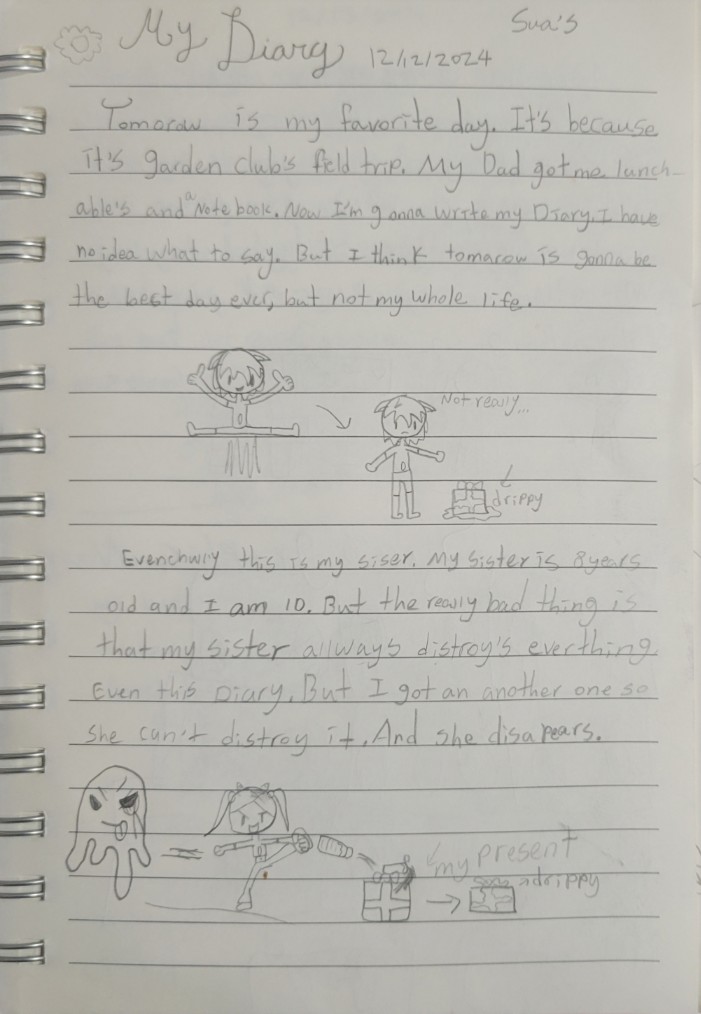 Sua's
My Diary 12/12/2024
Tomorow is my favorite day. It's because
it's garden club's field trip. My Dad got me lunch-
able's and a Notebook. Now I'm gonna write my Diary. I have
no idea what to say. But I think tomarow is gonna be
the best day ever, but not my whole life.
Not really...
drippy
Evenchwly this is my siser. My sister is 8 years
old and I am 10. But the really bad thing is
that my sister allways distroy's everthing.
Even this Diary. But I got an another one so
she can't distroy it. And she disapears.
my present
drippy